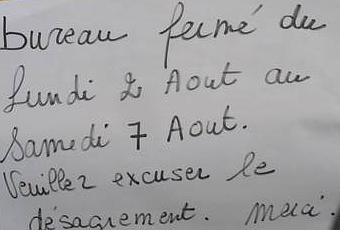 bureau fermé du
Lundi 2 Aout au
Samedi 7 Aout.
Veuillez excuser le
désagrement. merci.